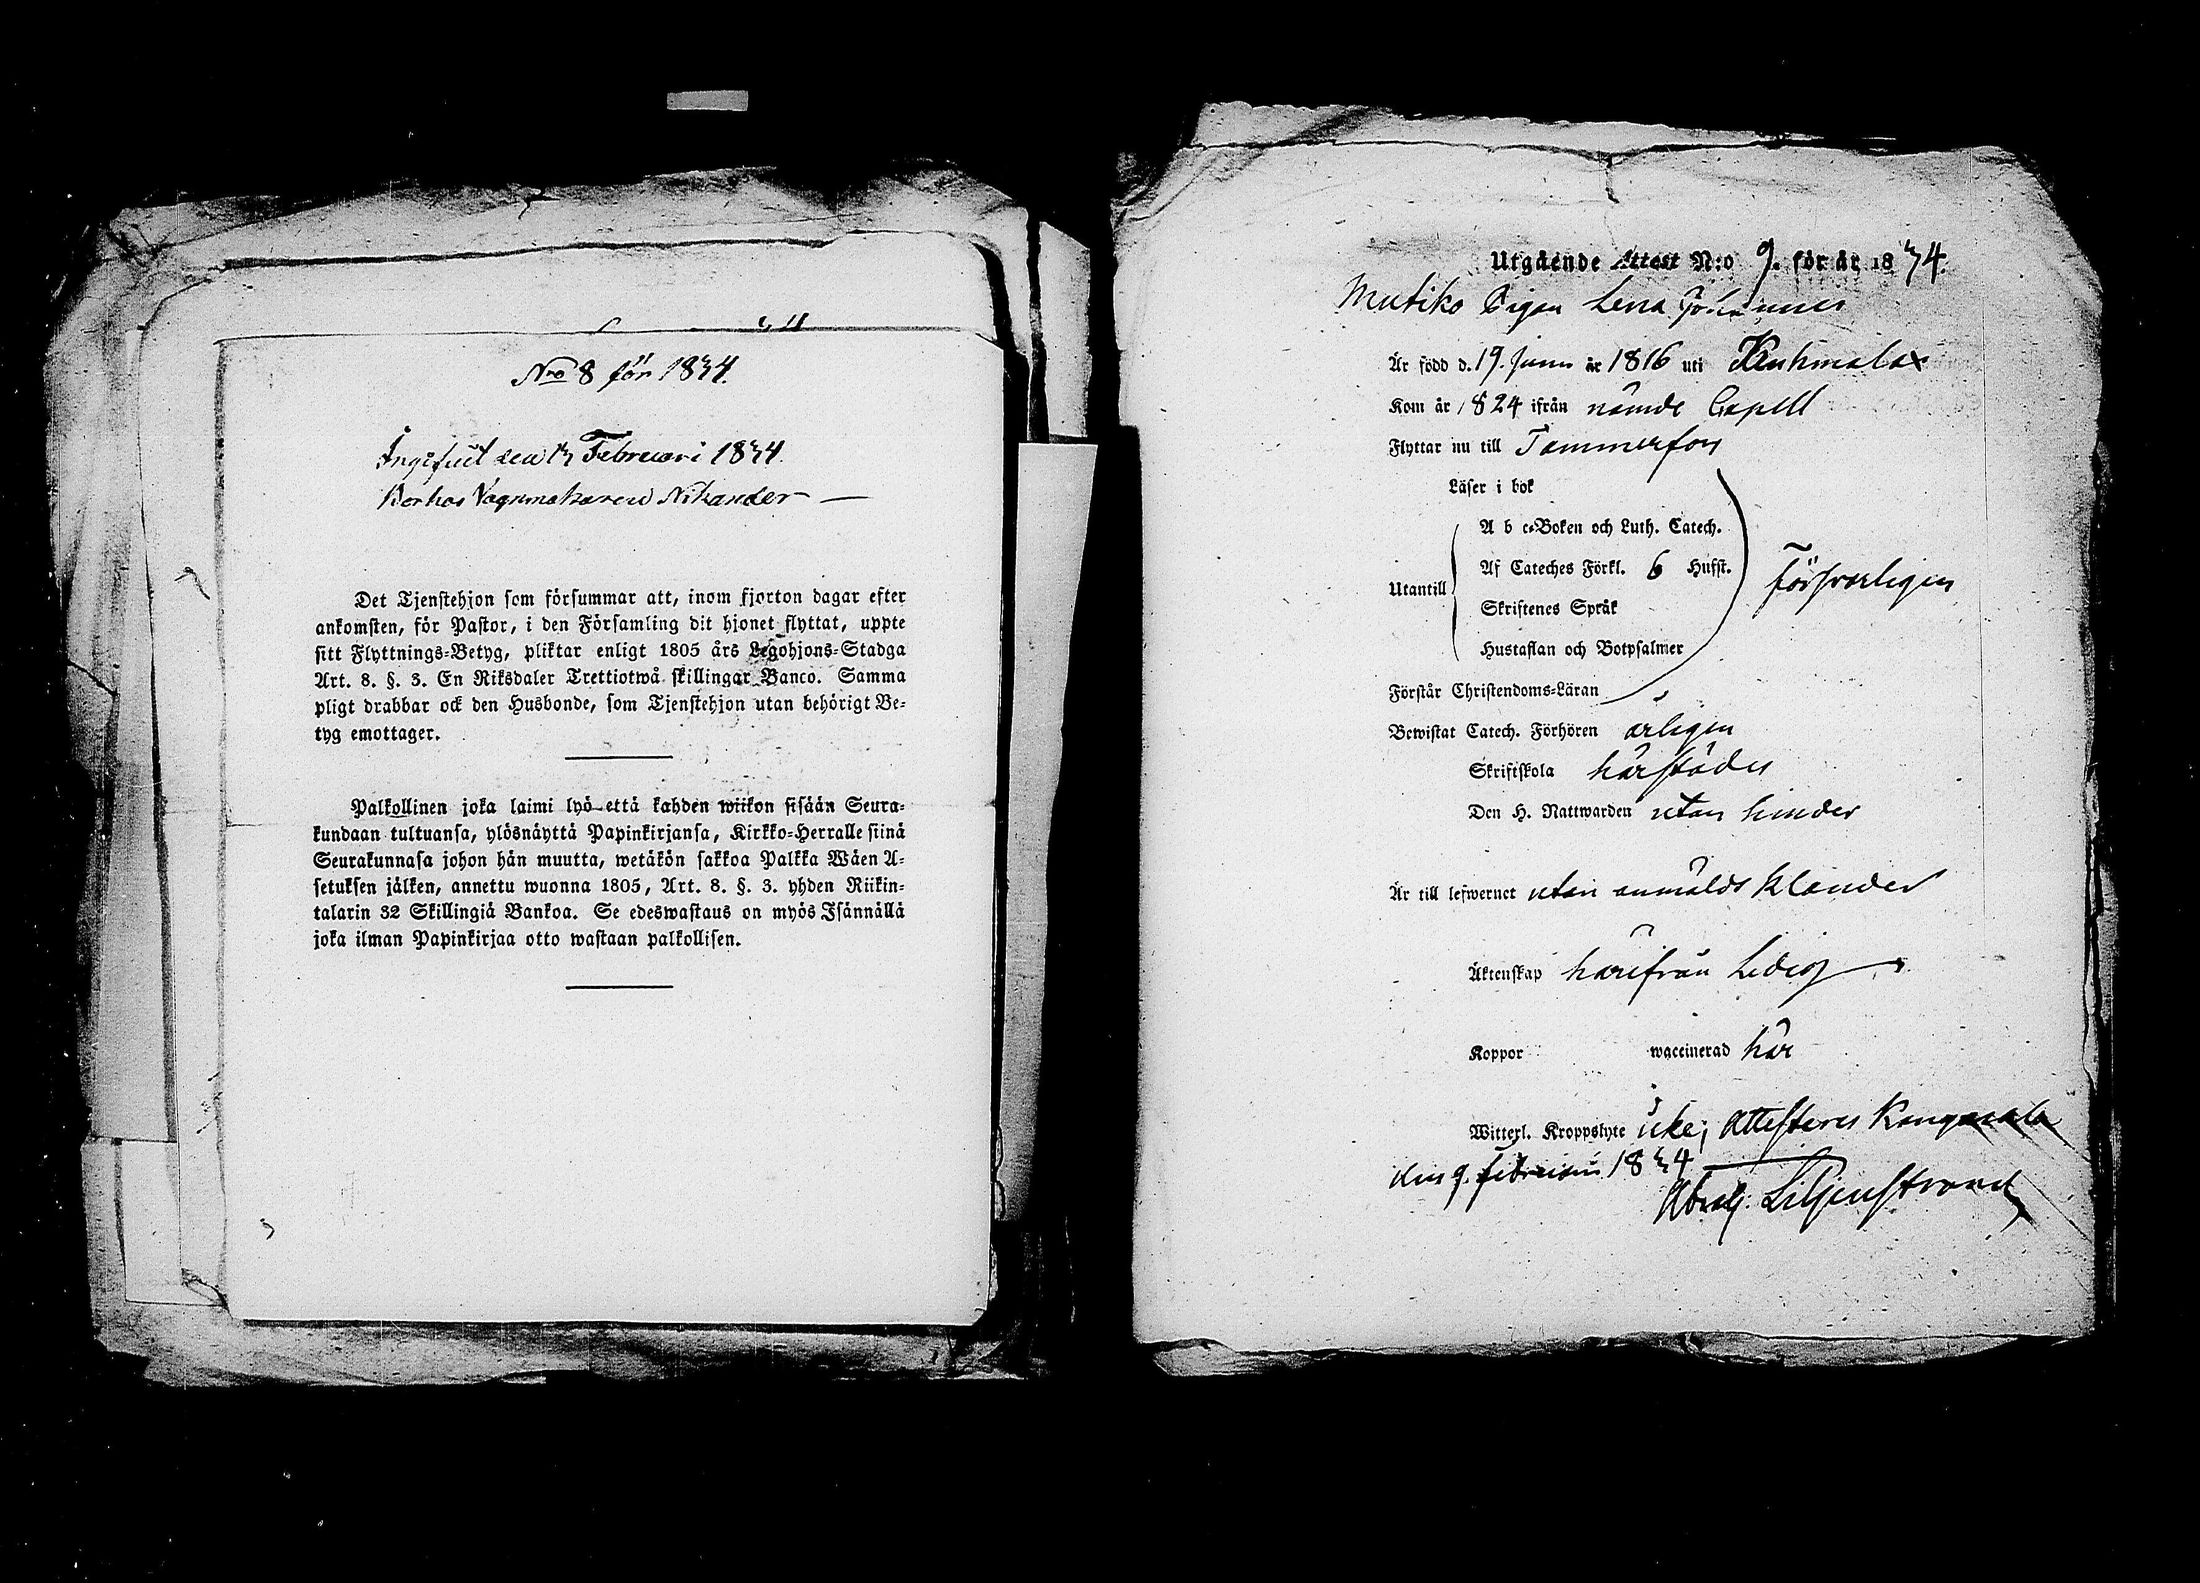 Nro 8 för 1834.
Ingifvit den 13 Februari 1834.
Bor hos Vagnmakaren Nikander
Det Tjenstehjon som försummar att, inom fjorton dagar efter
ankomsten, för Pastor, i den Församling dit hjonet flyttat, uppte
sitt Flyttnings-Betyg, pliktar enligt 1805 års Legohjons-Stadga
Art. 8. §. 3. En Riksdaler Trettiotwå skillingar Banco. Samma
pligt drabbar ock den Husbonde, som Tjenstehjon utan behörigt Be-
tyg emottager.
Palkollinen joka laimi lyö että kahden wiikon sisään Seura-
kundaan tultuansa, ylösnäyttä Papinkirjansa, Kirkko-Herralle siinä
Seurakunnasa johon hän muutta, wetäkön sakkoa Palkka Wäen A-
setuksen jälken, annettu wuonna 1805, Art. 8. §. 3. yhden Riikin-
talarin 32 Skillingiä Bankoa. Se edeswastaus on myös Isännällä
joka ilman Papinkirjaa otto wastaan palkollisen.
Utgående Attest N:o 9. för år 1834.
Mutiko Pigan Lena Johannes
Är född d. 19. Junii år 1816 uti Kuhmalax
Kom år 1824 ifrån nämde Capell
Flyttar nu till Tammerfors
Läser i bok
A b c-Boken och Luth. Catech.
Utantill Af Cateches Förkl. 6 Hufst. försvarligen
Skriftenes Språk
Hustaflan och Botpsalmer
Förstår Christendoms-Läran
Bewistat Catech. Förhören årligen
Skriftskola härstädes
Den H. Nattwarden utan hinder
Är till lefwernet utan anmäldt klander
Äktenskap härifrån Ledig
Koppor waccinerad här
Witterl. Kroppslyte icke; Attesteres Kangasala
den 9. februari 1834
Abrah. Liljenstrand